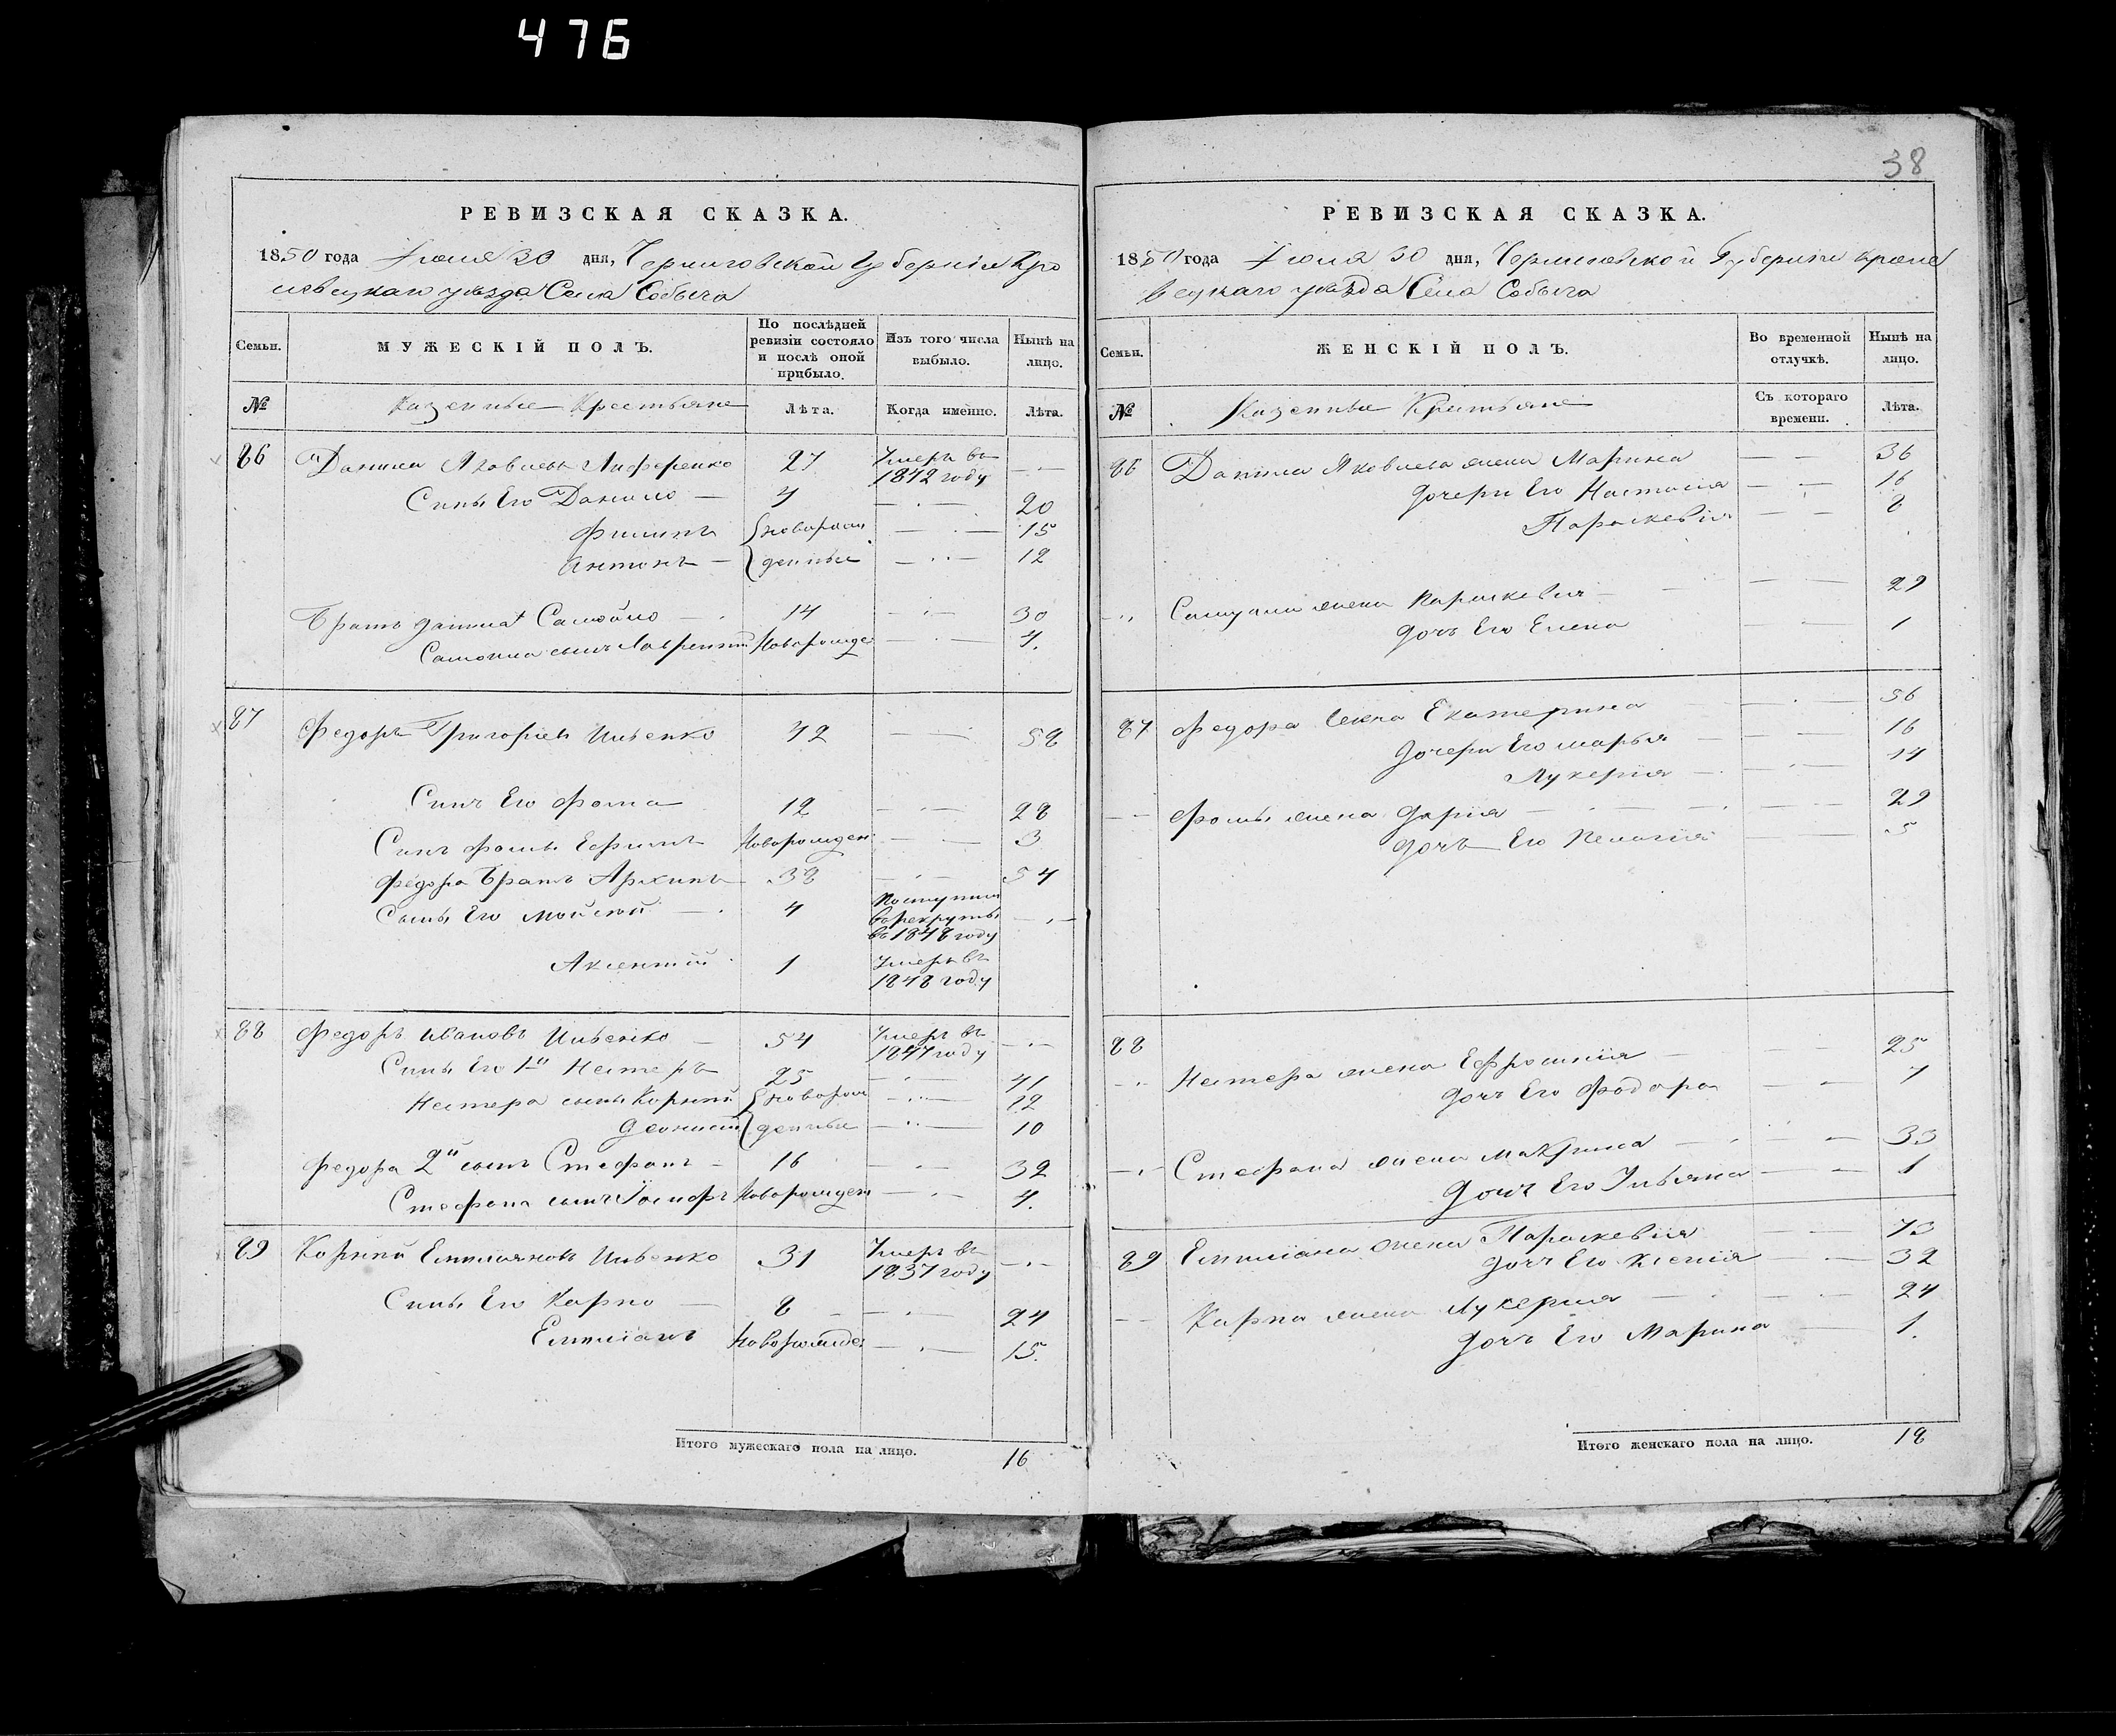 476
38
РЕВИЗСКАЯ СКАЗКА.
1850 года Июля 30 дня, Черниговской Губерніи Кро
левецкаго уѣзда Села Собыча
Семьи.
МУЖЕСКІЙ ПОЛЪ.
По послѣдней ревизіи состояло и послѣ оной прибыло.
Изъ того числа выбыло.
Нынѣ на лицо.
№ Казенные Крестьяне Лѣта. Когда именно. Лѣта.
86 Данила Яковлевъ 27 Умеръ въ 1842 году
Сины Его Данило 4 20
Филипъ новорож 15
Антонъ денные 12
Братъ Данила Самойло 14 30
Самойла сынъ Лаврентій Новорожде 4.
87 Федоръ Григоріевъ Ивенко 42 58
Синъ Его Фома 12 28
Синъ Фомы Ефимъ Новорожден 3
Федора Братъ Архипъ 38 54
Сины Его Мойсей 4 Поступилъ въ рекруты въ 1848 году
Аксентій 1 Умеръ въ 1848 году
88 Федоръ Ивановъ Ивенко 54 Умеръ въ 1847 году
Сины Его 1й Нестеръ 25 41
Нестера сыны Корній новорож 12
Деонисій денные 10
Федора 2й сынъ Стефанъ 16 32
Стефана сынъ Іосифъ Новорожден 4.
89 Корній Емиліяновъ Ивенко 31 Умеръ въ 1837 году
Сины Его Карпо 8 24
Емиліанъ Новорожде 15.
Итого мужескаго пола на лицо. 16
РЕВИЗСКАЯ СКАЗКА.
1850 года Июля 30 дня, Черниговской Губерніи Кроле
вецкаго уѣзда Села Собыча
Семьи.
ЖЕНСКІЙ ПОЛЪ.
Во временной отлучкѣ.
Нынѣ на лицо.
№ Казенные Крестьяне Съ котораго времени. Лѣта.
86 Данила Яковлева жена Марина 36
Дочери Его Настасія 16
Параскевія 8
Самуила жена Параскевія 29
Дочь Его Елена 1
87 Федора жена Екатерина 56
Дочери Его Марья 16
Лукерія 14
Фомы жена Дарія 29
Дочь Его Пелагія 5
88
Нестера жена Ефросинія 25
Дочь Его Федора 7
Стефана жена Макрина 33
Дочь Его Ульяна 1
89 Емиліана жена Параскевія 73
Дочь Его Ксенія 32
Карпа жена Лукерія 24
Дочь Его Марина 1.
Итого женскаго пола на лицо. 18